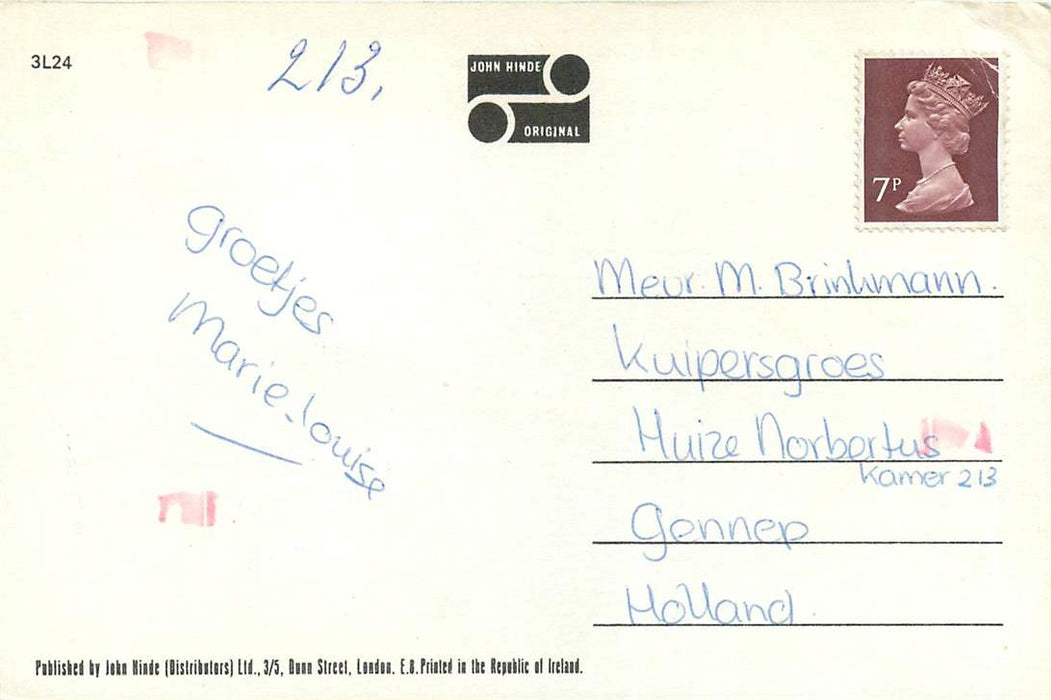 3L24
213.
JOHN HINDE
ORIGINAL
7P
Groetjes
Marie-Louise
Mevr. M. Brinkmann.
Kuipersgroes
Huize Norbertus
Kamer 213
Gennep
Holland.
Published by John Hinde (Distributors) Ltd., 3/5, Dunn Street, London. E.8. Printed in the Republic of Ireland.